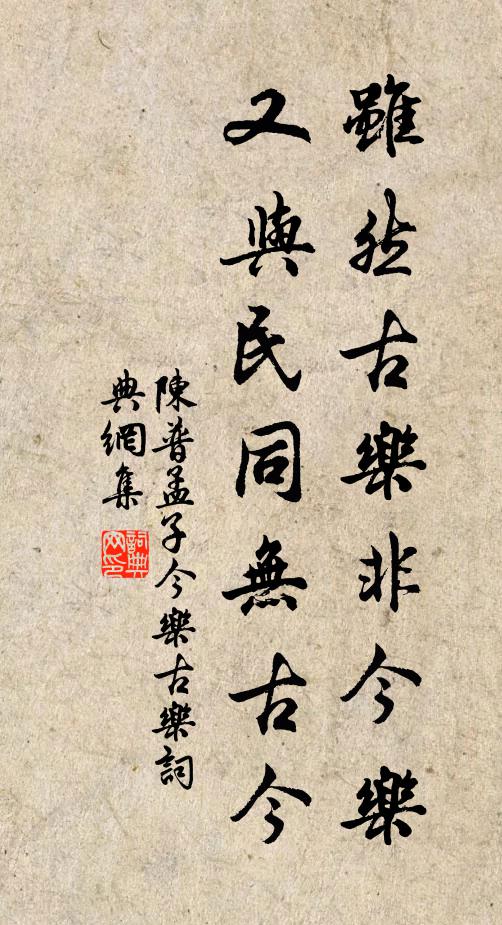 雖然古樂非今樂
又與民同無古今
陳普孟子今樂古樂詞
典網集
詞典网印